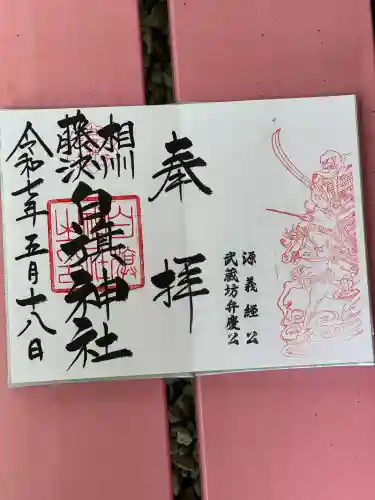 源義経公
武蔵坊弁慶公
奉拝
相州
藤沢
白旗神社
令和七年五月十八日